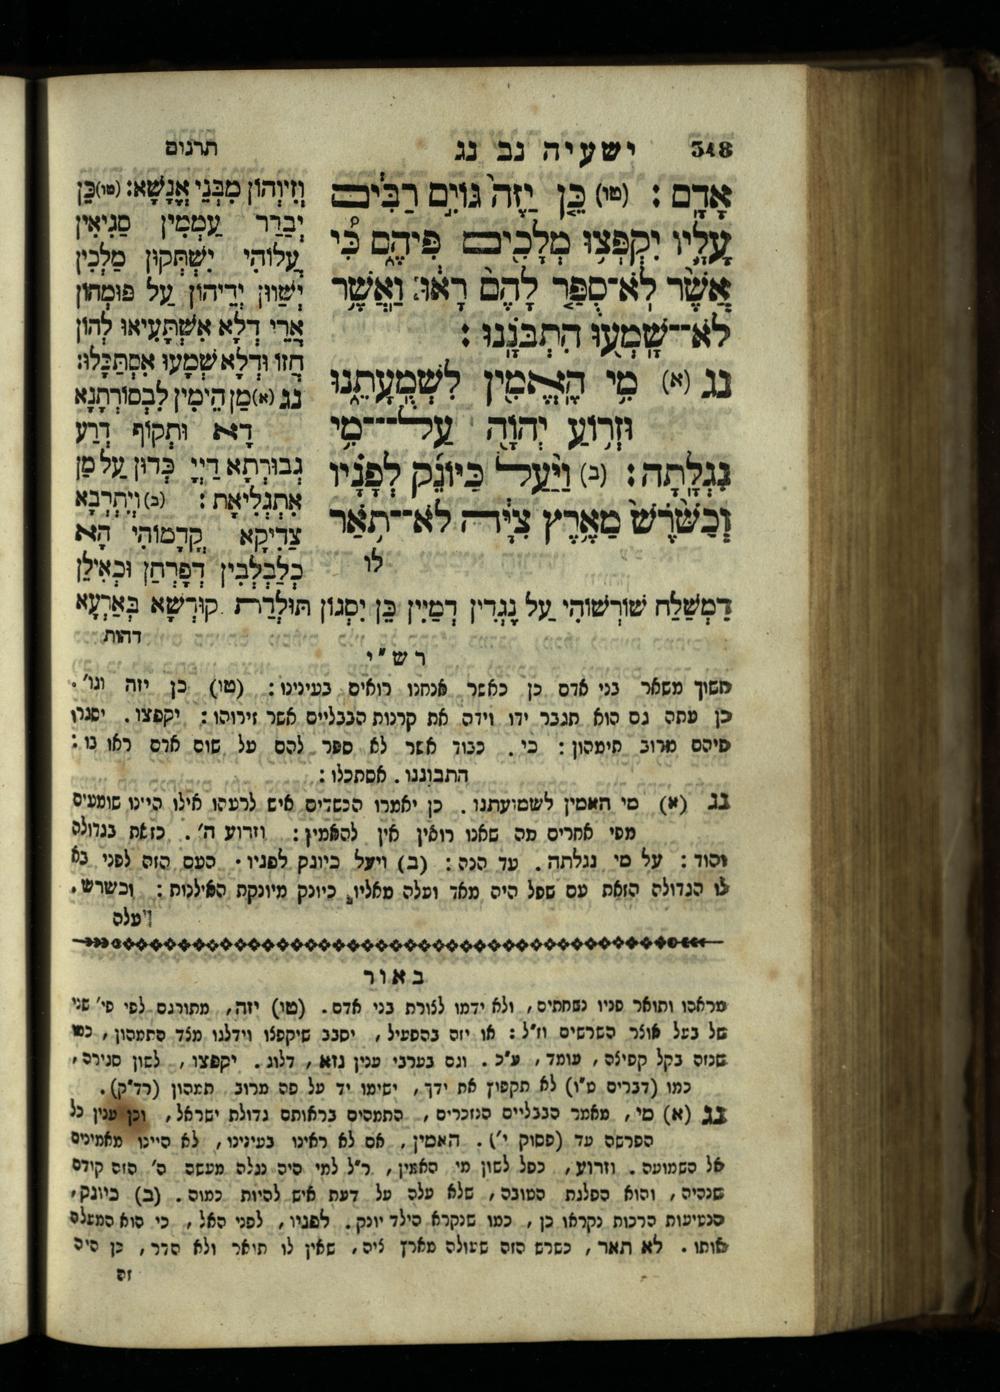 348
ישעיה נב נג
תרגום
אָדָם : (טו) כֵּן יַזֶּה גּוֹיִם רַבִּים
עָלָיו יִקְפְּצוּ מְלָכִים פִּיהֶם כִּי
אֲשֶׁר לֹא־סֻפַּר לָהֶם רָאוּ וַאֲשֶׁר
לֹא־שָׁמְעוּ הִתְבּוֹנָנוּ :
נג (א) מִי הֶאֱמִין לִשְׁמֻעָתֵנוּ
וּזְרוֹעַ יְהוָֹה עַל־מִי
נִגְלָתָה : (ב) וַיַּעַל כַּיּוֹנֵק לְפָנָיו
וְכַשֹּׁרֶשׁ מֵאֶרֶץ צִיָּה לֹא־תֹאַר
לו
וְזִיוְהוֹן מִבְּנֵי אֱנָשָׁא : (טו) כֵּן
יְבַדַּר עַמְמִין סַגִּיאִין
עֲלוֹהִי יִשְׁתְּקוּן מַלְכִין
יְשַׁוּוּן יְדֵיהוֹן עַל פּוּמְהוֹן
אֲרֵי דְלָא אִשְׁתָּעִיאוּ לְהוֹן
חֲזוֹ וּדְלָא שְׁמָעוּ אִסְתַּכָּלוּ :
נג (א) מַן הֵימִין לִבְסוֹרְתָנָא
דָא וּתְקוֹף דְּרַע
גְבוּרְתָּא דַיְיָ כְּדוּן עַל מַן
אִתְגְּלִיאַת : (ב) וְיִתְרְבָּא
צַדִּיקָא קֳדָמוֹהִי הָא
כְלַבְלְבִין דְּפָרְחַן וּכְאִילָן
דִּמְשַׁלַּח שׁוֹרְשׁוֹהִי עַל נַגְדִין דְּמַיִין כֵּן יִסְגּוּן תּוּלְדַת קוּדְשָׁא בְּאַרְעָא
דהות
רש"י
חשוך משאר בני אדם כן כאשר אנחנו רואים בעינינו : (טו) כן יזה וגו' .
כן עתה גם הוא תגבר ידו וידה את קרנות הבבליים אשר זירוהו : יקפצו . יסגרו
פיהם מרוב תימהון : כי . כבוד אשר לא ספר להם על שום אדם ראו בו :
התבוננו . אסתכלו :
נג (א) מי האמין לשמועתנו . כן יאמרו הכשדים איש לרעהו אילו היינו שומעים
מפי אחרים מה שאנו רואין אין להאמין : וזרוע ה' . כזאת בגדולה
והוד : על מי נגלתה . עד הנה : (ב) ויעל כיונק לפניו . העם הזה לפני בא
לו הגדולה הזאת עם שפל היה מאד ועלה מאליו כיונק מיונקת האילנות : וכשרש .
ויעלה
באור
מראהו ותואר פניו נשחתים , ולא ידמו לצורת בני אדם . (טו) יזה , מתורגם לפי פי' שני
של בעל אוצר השרשים וז"ל : או יזה בהפעיל , יסבב שיקפצו וידלגו מצד התמהון , כמו
שנזה בקל קפיצה , עומד , ע"כ . וגם בערבי ענין נזא , דלוג . יקפצו , לשון סגירה ,
כמו (דברים ט"ו) לא תקפוץ את ידך , ישימו יד על פה מרוב תמהון (רד"ק) .
נג (א) מי , מאמר הבבליים הנזכרים , התמהים בראותם גדולת ישראל , וכן ענין כל
הפרשה עד (פסוק י') . האמין , אם לא ראינו בעינינו , לא היינו מאמינים
אל השמועה . וזרוע , כפל לשון מי האמין , ר"ל למי היה נגלה מעשה ה' הזה קודם
שנהיה , והוא הפלגת הטובה , שלא עלה על דעת איש להיות כמוה . (ב) כיונק ,
הנטיעות הרכות נקראו כן , כמו שנקרא הילד יונק . לפניו , לפני האל , כי הוא המעלה
אותו . לא תאר , כשרש הזה שעולה מארץ ציה , שאין לו תואר ולא הדר , כן היה
זה